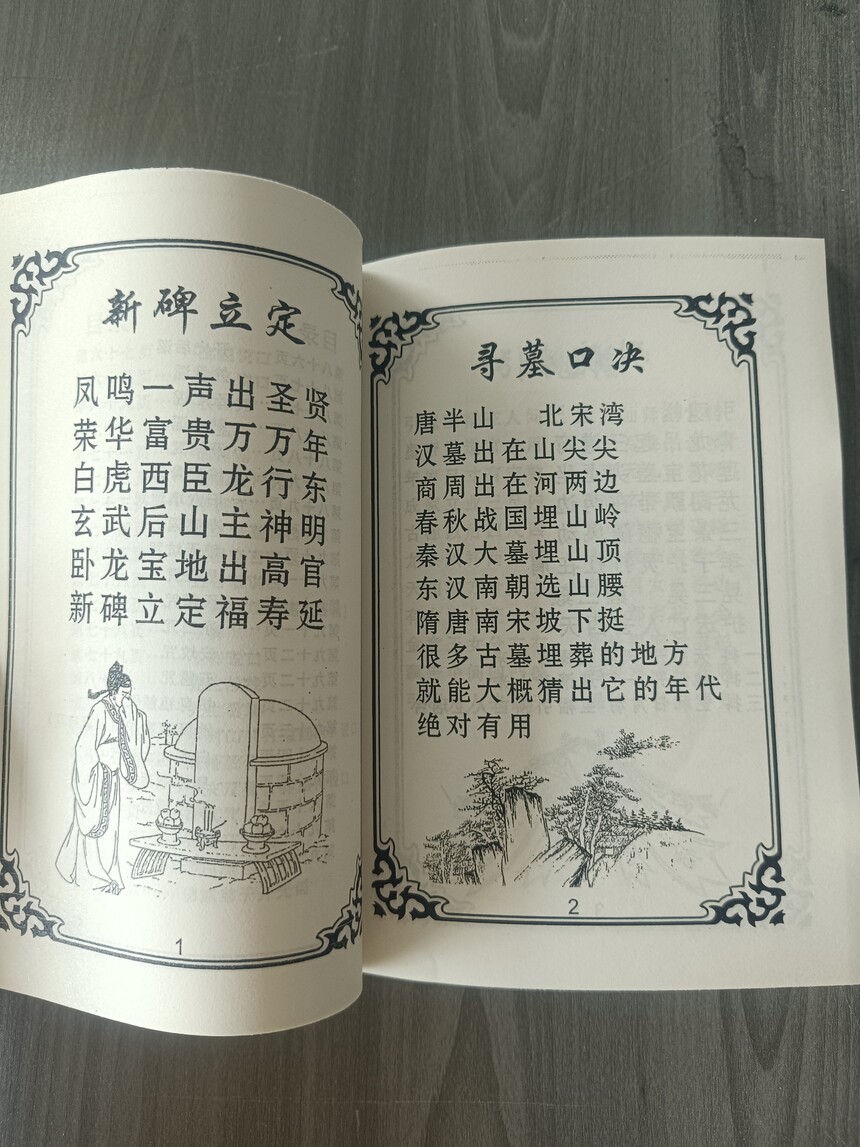 新碑立定
凤鸣一声出圣贤
荣华富贵万万年
白虎西臣龙行东
玄武后山主神明
卧龙宝地出高官
新碑立定福寿延
1
寻墓口决
唐半山 北宋湾
汉墓出在山尖尖
商周出在河两边
春秋战国埋山岭
秦汉大墓埋山顶
东汉南朝选山腰
隋唐南宋坡下挺
很多古墓埋葬的地方
就能大概猜出它的年代
绝对有用
2